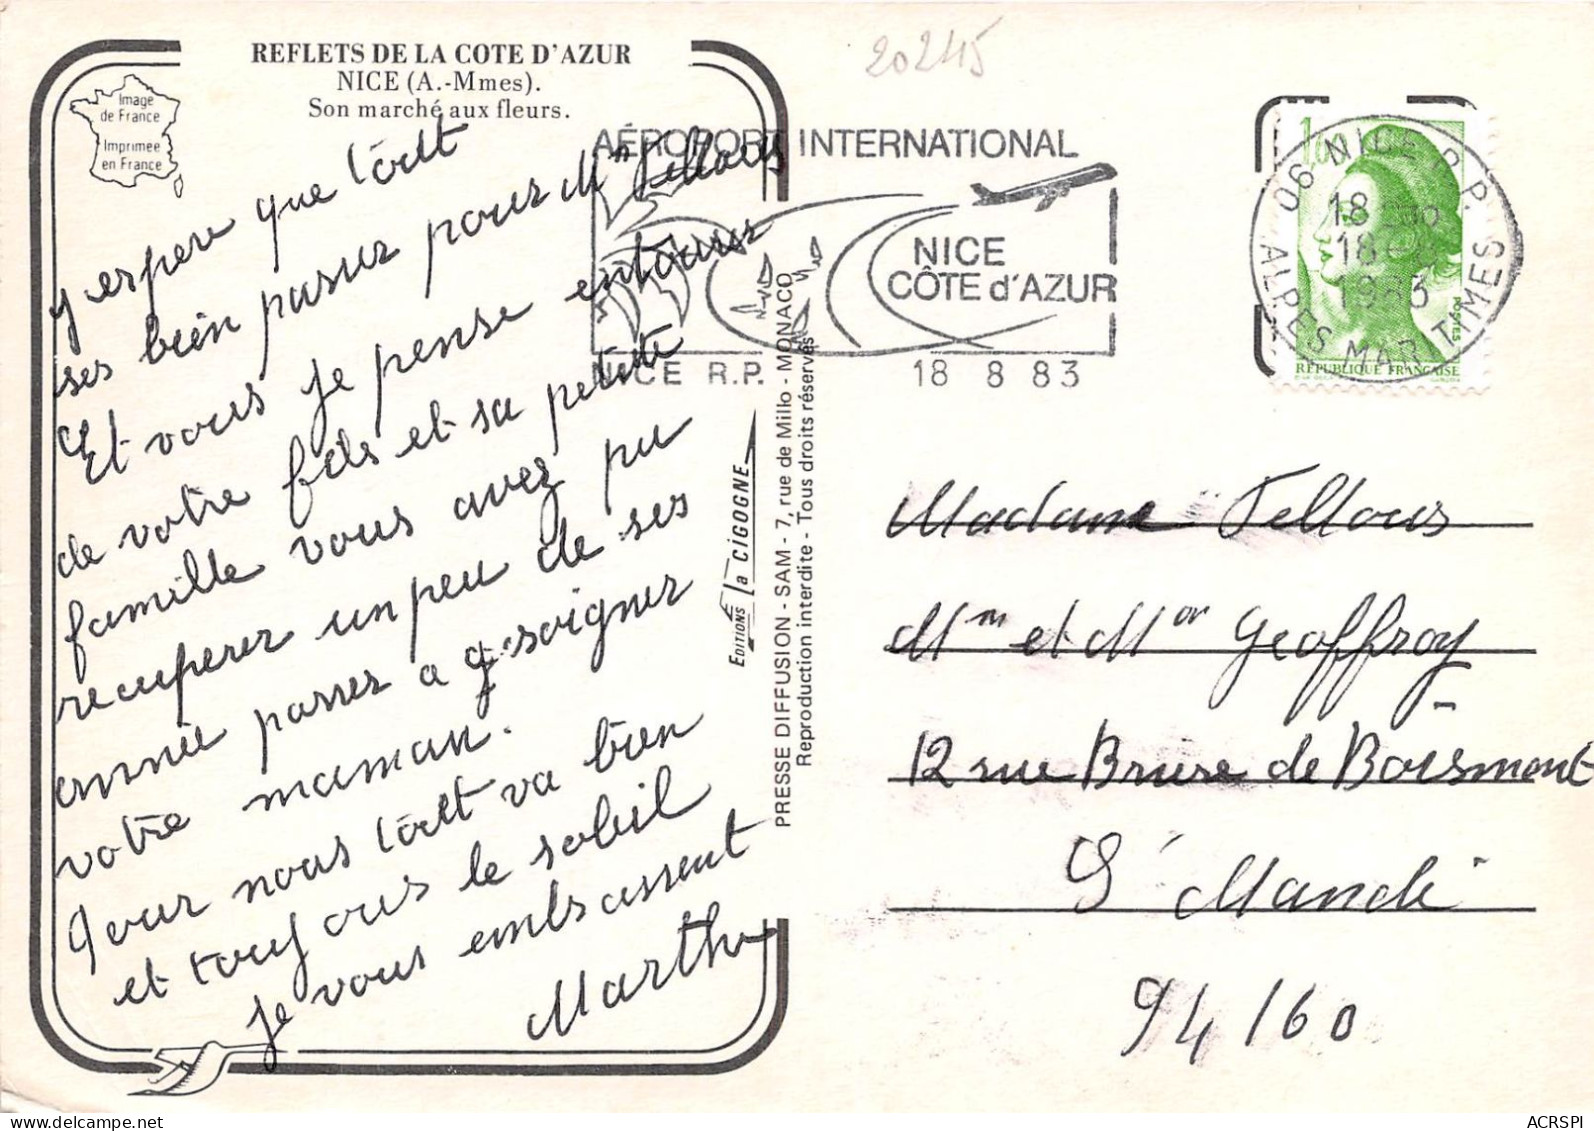 REFLETS DE LA COTE D'AZUR
NICE (A.-Mmes).
Son marché aux fleurs.
Image
de France
Imprimée
en France
20245
j espere que tout
ses bien passer pour Mr Fellous
Et vous je pense entourer
de votre fils et sa petite
famille vous avez pu
recuperer un peu de ses
année passer a soigner
votre maman.
Pour nous tout va bien
et toujours le soleil
Je vous embrassent
Marthe
EDITIONS la CIGOGNE
PRESSE DIFFUSION - SAM - 7, rue de Millo - MONACO
Reproduction interdite - Tous droits réservés
AÉROPORT INTERNATIONAL
NICE
CÔTE d'AZUR
NICE R.P. 18 8 83
1,60
06 NICE R.P.
18
18 - 8
1983
ALPES MARITIMES
POSTES
RÉPUBLIQUE FRANÇAISE
Madame Fellous
Mm et Mor Geoffroy
12 rue Briere de Boismont
St Mandé
94160
ACRSPI